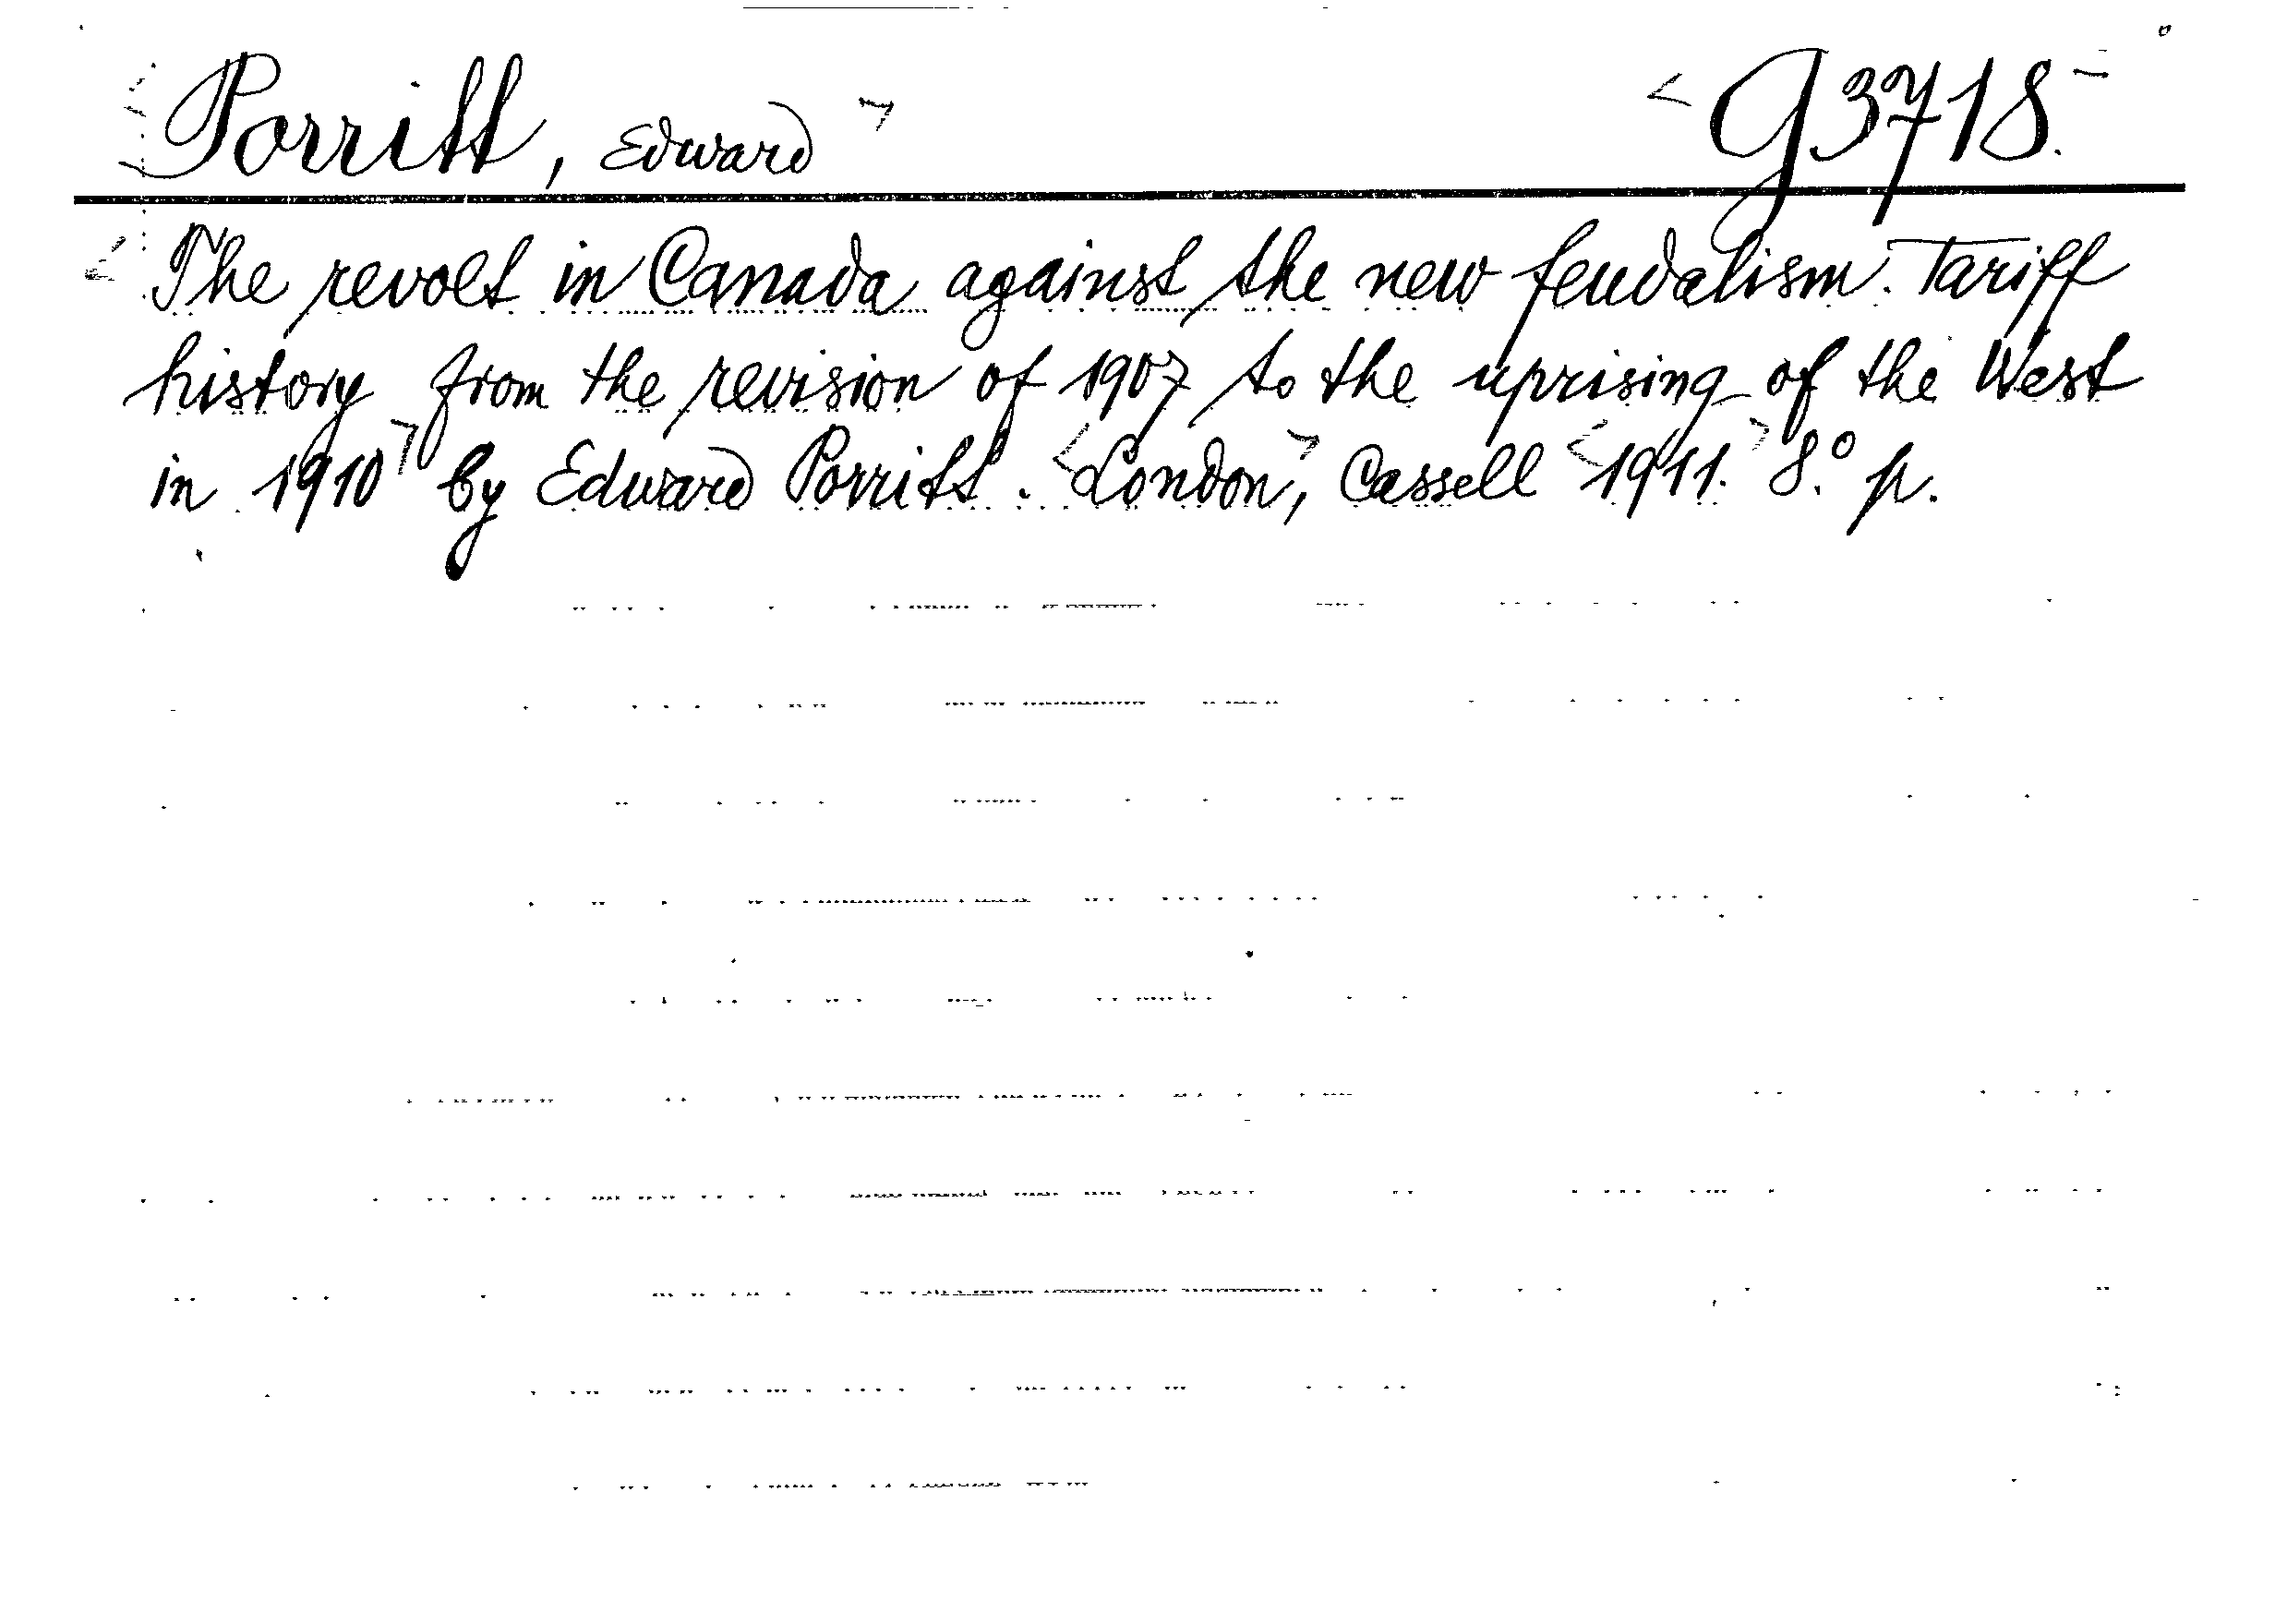 Porritt, Edward
G3718.
The revolt in Canada against the new feudalism. Tariff
history from the revision of 1907 to the uprising of the West
in 1910 by Edward Porritt. London, Cassell 1911. 8.° p.